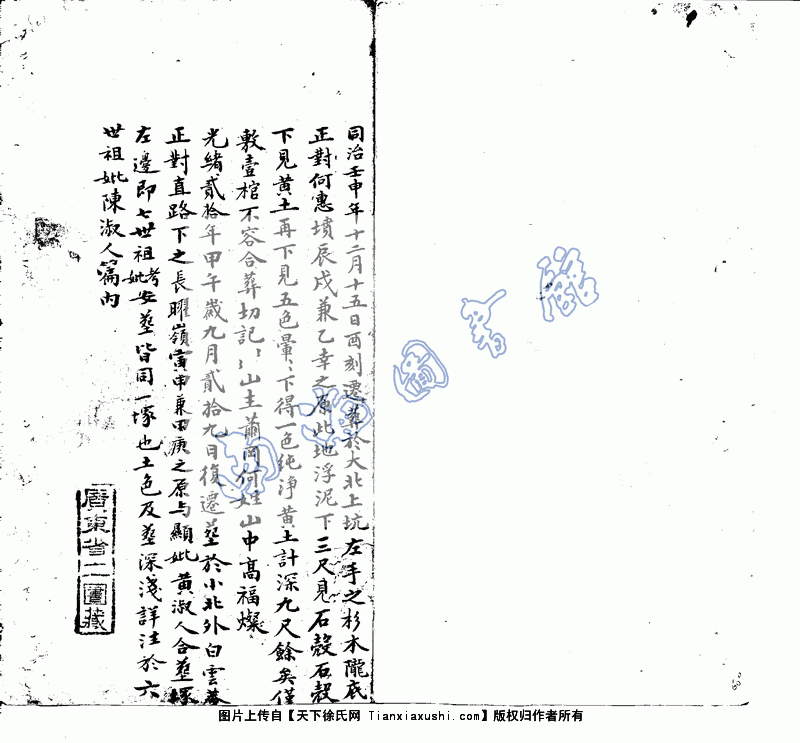 同治壬申年十二月十五日酉刻遷葬於大北上坑左手之杉木隴底
正對何惠墳辰戌兼乙辛之原此地浮泥下三尺見石殼石殼
下見黃土再下見五色暈〻下得一色純淨黃土計深九尺餘矣僅
敷壹棺不容合葬切記〻山主蕭岡何姓山中高福燦
光緒貳拾年甲午歲九月貳拾九日復遷塟於小北外白雲菴
正對直路下之長曜嶺寅申兼甲庚之原与顯妣黃淑人合塟塚
左邊即七世祖考妣安塟皆同一塚也土色及塟深淺詳注於六
世祖妣陳淑人篇內
廣東省立圖藏
圖書館
图片上传自【天下徐氏网 Tianxiaxushi.com】版权归作者所有